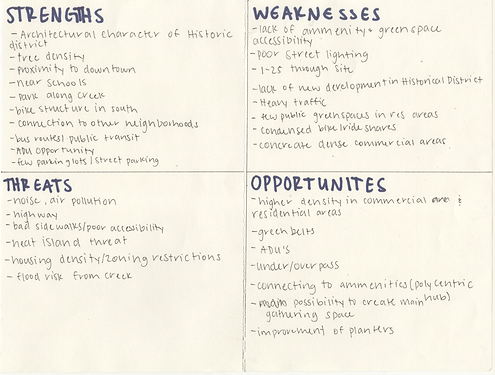 STRENGTHS
- Architectural character of Historic
district
- tree density
- proximity to downtown
- near schools
- park along creek
- bike structure in south
- connection to other neighborhoods
- bus routes/public transit
- ADU opportunity
- few parking lots/street parking
WEAKNESSES
- lack of ammenity + greenspace
accessibility
- poor street lighting
- I-25 through site
- lack of new development in Historical District
- Heavy traffic
- few public greenspaces in res areas
- condensed bike/ride shares
- concreate dense commercial areas
THREATS
- noise, air pollution
- highway
- bad sidewalks/poor accessibility
- heat island threat
- housing density/zoning restrictions
- flood risk from creek
OPPORTUNITES
- higher density in commercial &
residential areas
- green belts
- ADU'S
- under/over pass
- connecting to ammenities (polycentric
hub)
- possibility to create main
gathering space
- improvement of planters